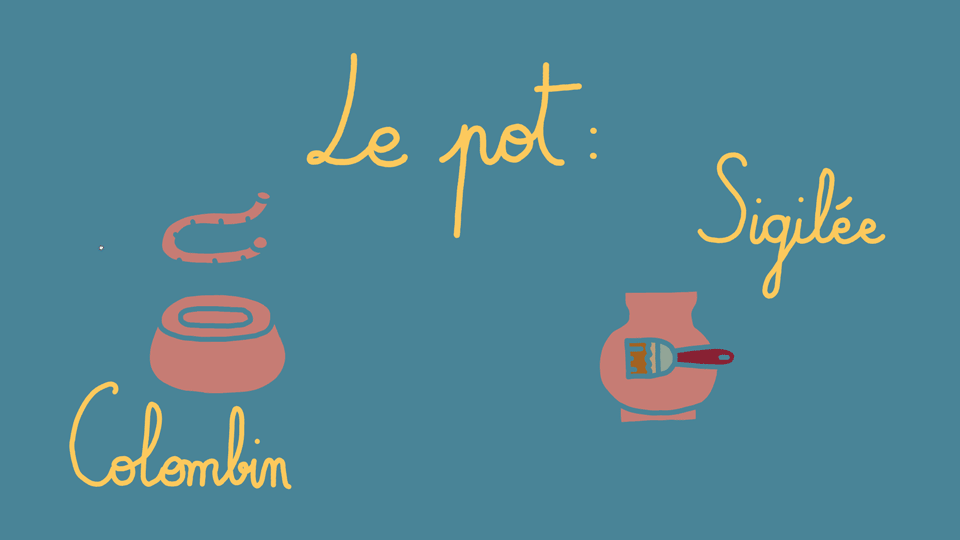 Le pot :
Sigilée
Colombin